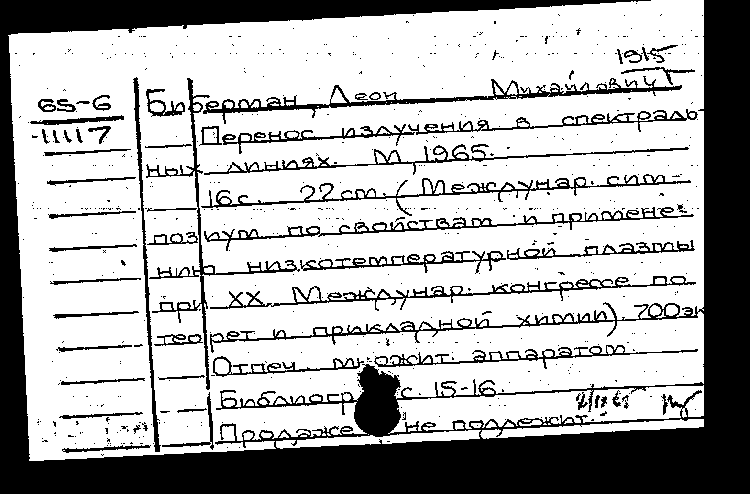 1915
65-6 Биберман, Леон Михайлович
11117 Перенос излучения в спектраль-
ных линиях. М, 1965.
16с. 22см. (Междунар. сим-
позиум по свойствам и примене-
нию низкотемпературной плазмы
при XX Междунар. конгрессе по
теорет и прикладной химии). 700эк
Отпеч. множит. аппаратом
Библиогр с. 15-16.
Продаже не подлежит.